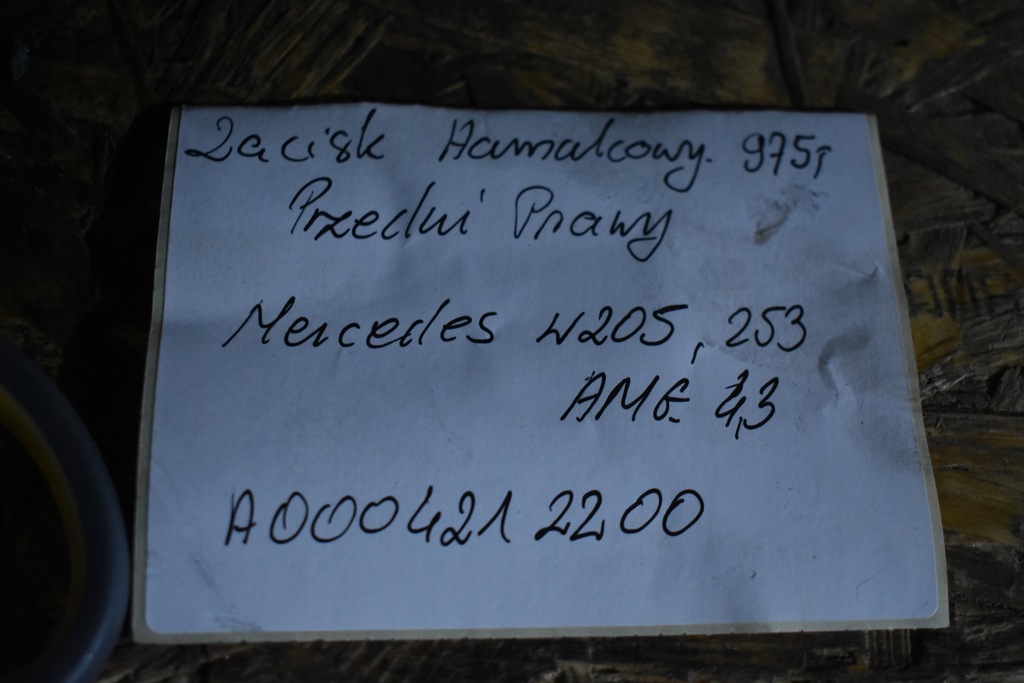 Zacisk Hamulcowy. 975,
Przedni Prawy
Mercedes W205, 253
AMG 4,3
A000 421 2200